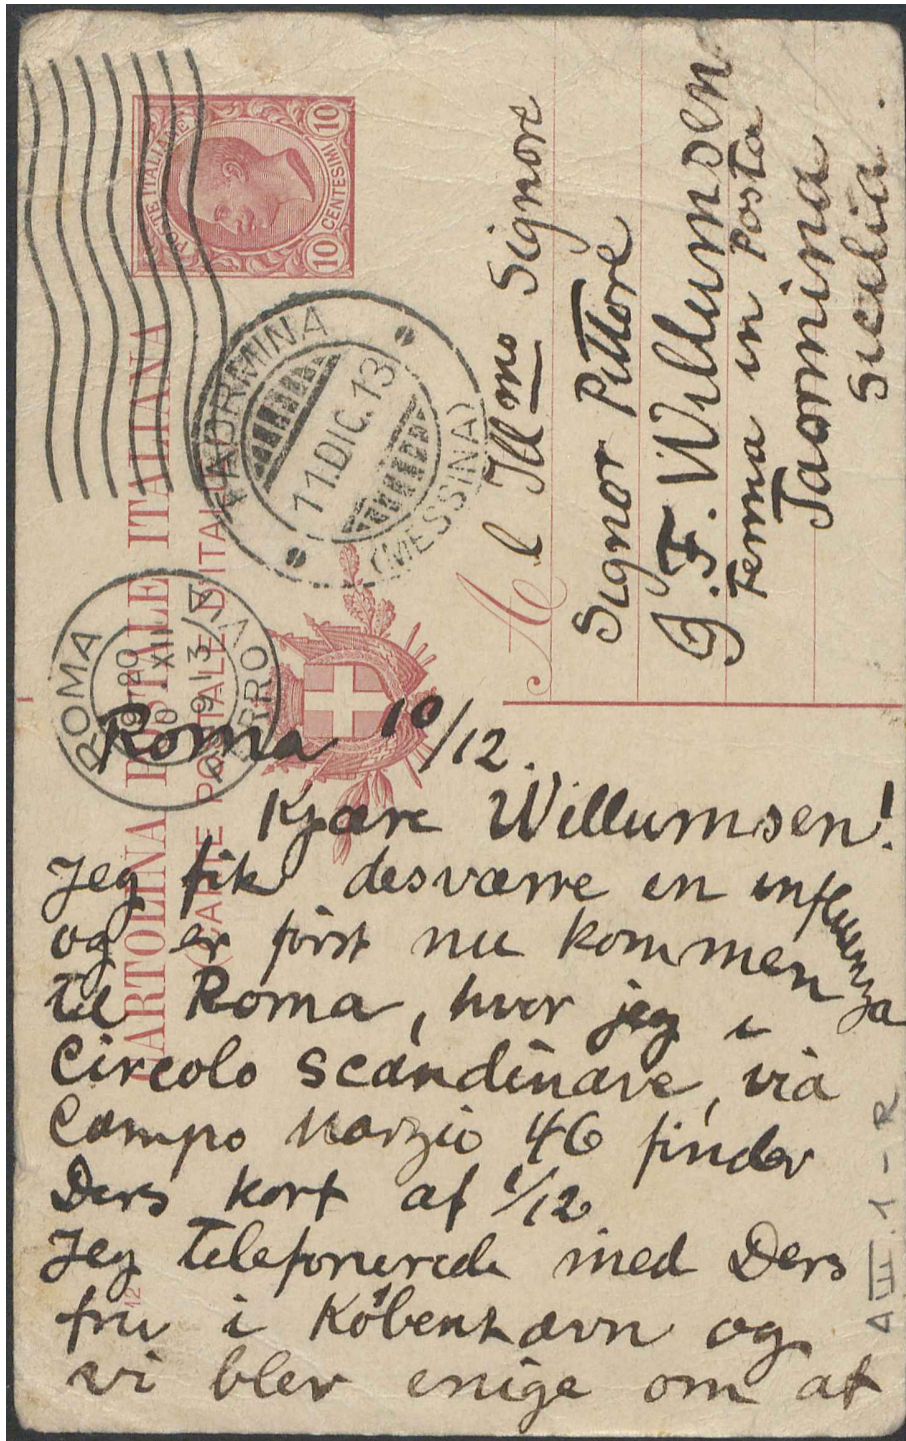 CARTOLINA POSTALE ITALIANA
(CARTE POSTALE D'ITALIE)
POSTE ITALIANE
10 CENTESIMI 10
TAORMINA
11.DIC.13
(MESSINA)
ROMA
XII
913
FERROVIA
Al Illmo Signore
Signor Pittore
J. F. Willumsen
Ferma in Posta
Taormina
Sicilia.
Roma 10/12.
Kjære Willumsen!
Jeg fik desværre en influenza
og er först nu kommen
til Roma, hvor jeg i
Circolo Scandinave, via
Campo Marzio 46 finder
Ders kort af 1/12
Jeg telefonerede med Ders
fru i Köbenhavn og
vi blev enige om at
12
A III. 1 - R